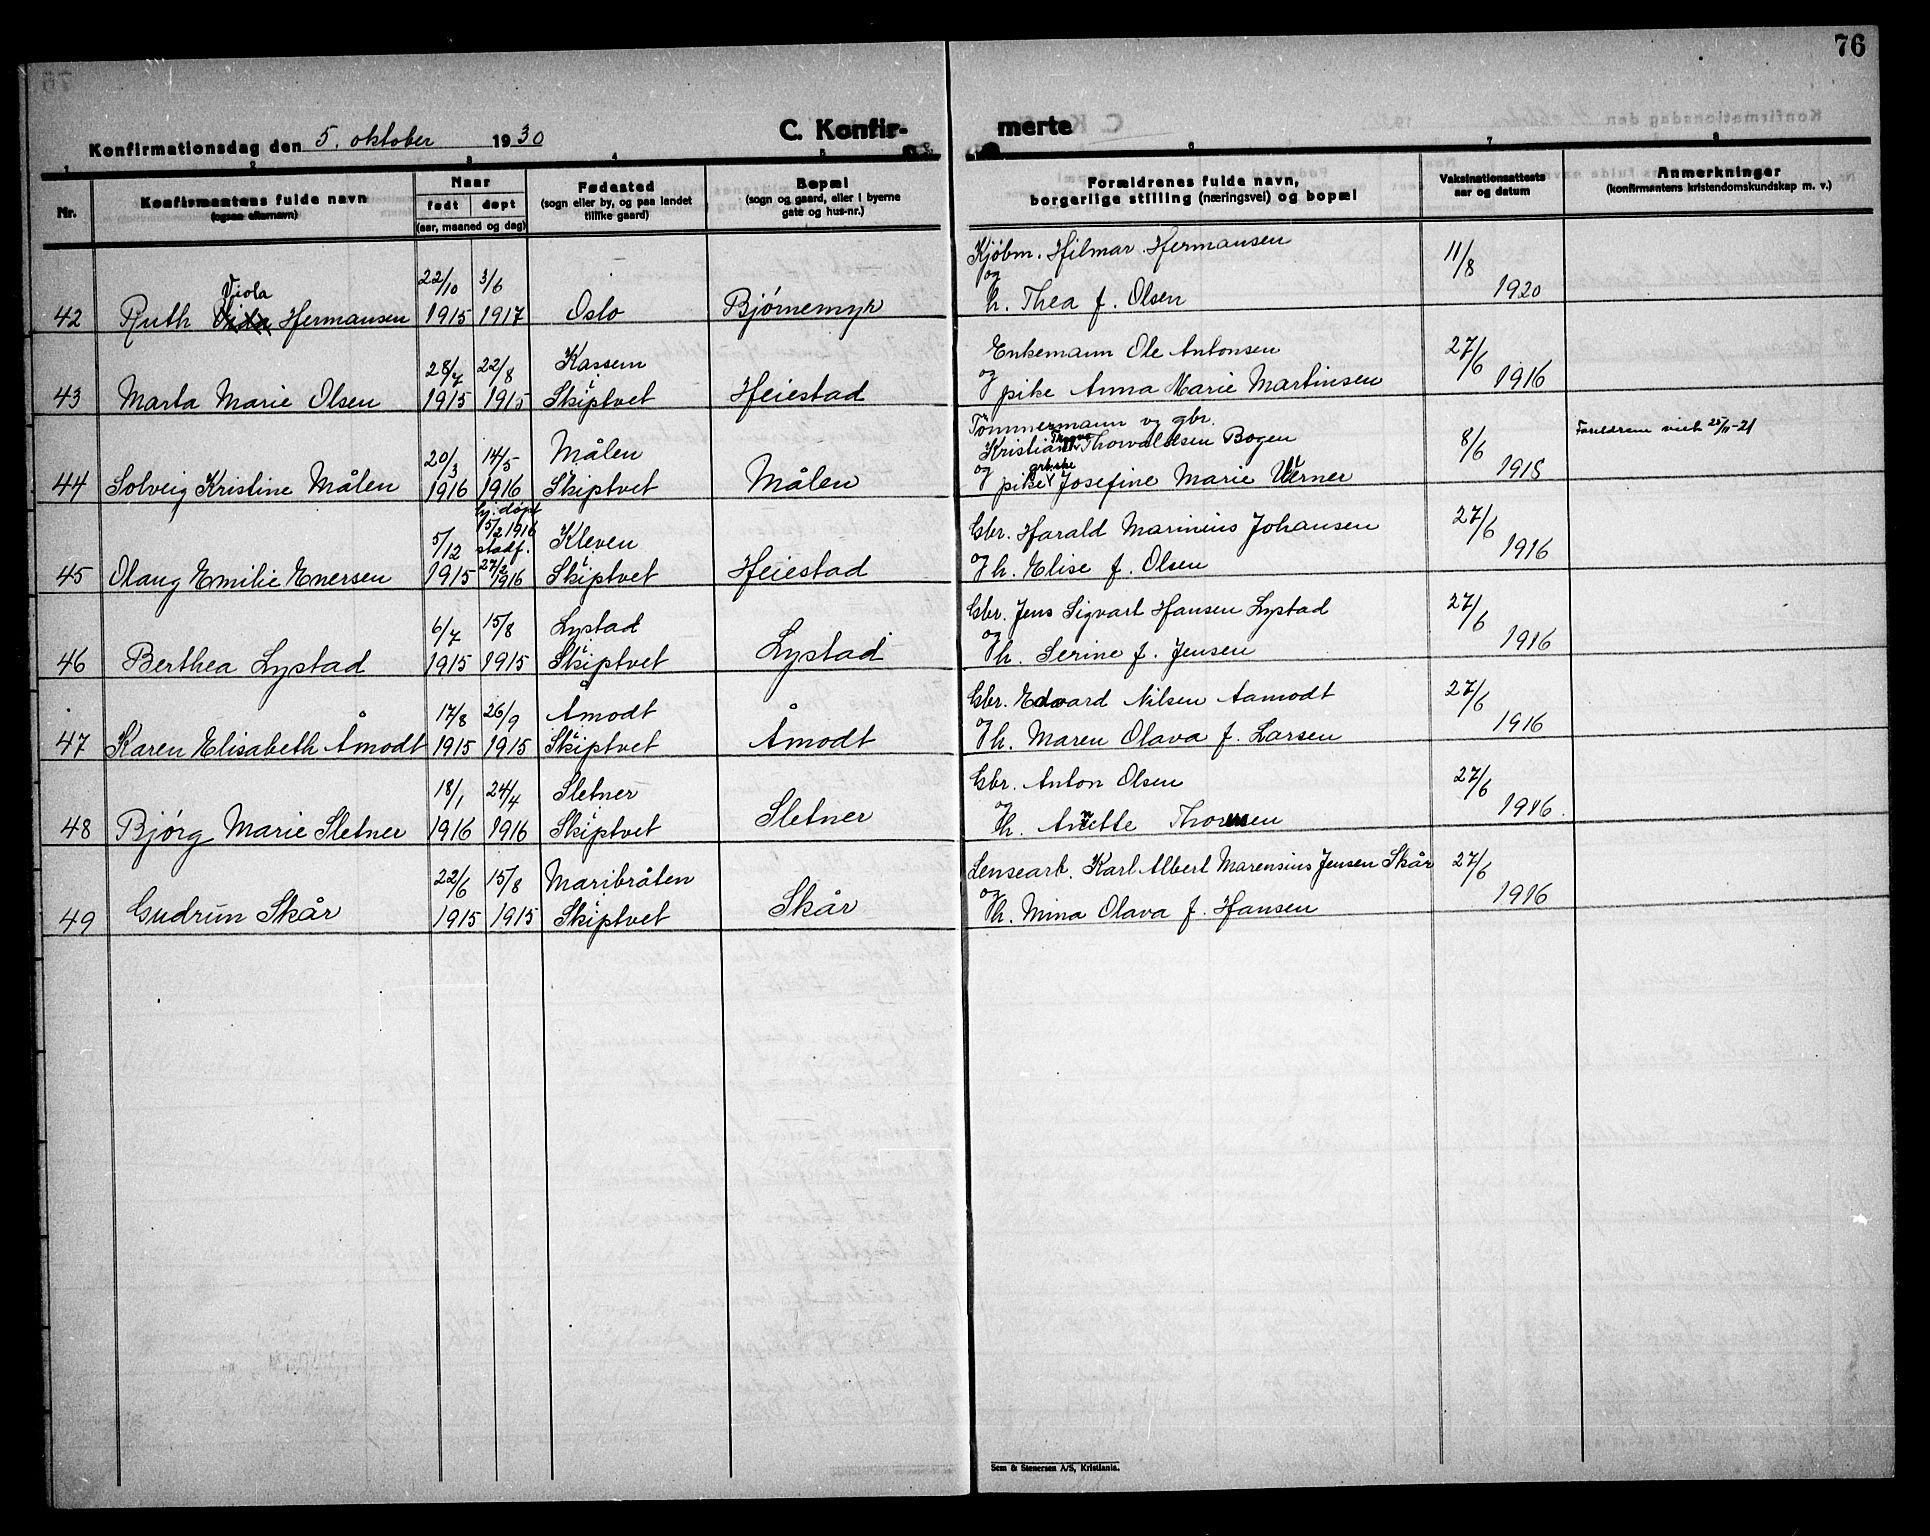 76
Konfirmationsdag den 5. oktober 1930
C. Konfir-
merte
1 2 3 4 5 6 7 8
Nr.
Konfirmantens fulde navn
(ogsaa efternavn)
Naar
født døpt
(aar, maaned og dag)
Fødested
(sogn eller by, og paa landet
tillike gaard)
Bopæl
(sogn og gaard, eller i byerne
gate og hus-nr.)
Forældrenes fulde navn,
borgerlige stilling (næringsvei) og bopæl
Vaksinationsattests
aar og datum
Anmerkninger
(konfirmantens kristendomskundskap m. v.)
Viola 22/10 3/6 Kjøbm. Hilmar Hermansen 11/8
og
42 Ruth Vida Hermansen 1915 1917 Oslo Bjørnemyr h. Thea f. Olsen 1920
28/7 22/8 Kassem Enkemann Ole Antonsen 27/6
i og
43 Marta Marie Olsen 1915 1915 Skiptvet Heiestad pike Anna Marie Martinsen 1916
Tømmermann og gbr.
20/3 14/5 Målen Kristian Thorvaldsen Bogen 8/6 Foreldrene viet 25/11-21
i og
44 Solveig Kristine Målen 1916 1916 Skiptvet Målen pike Josefine Marie Werner 1918
hj. døpt
15/2 1916
5/12 stadf. Kleven Gbr. Harald Marinius Johansen 27/6
i og
45 Olaug Emilie Enersen 1915 27/2 1916 Skiptvet Heiestad h. Elise f. Olsen 1916
6/7 15/8 Lystad Gbr. Jens Sigvart Hansen Lystad 27/6
i og
46 Berthea Lystad 1915 1915 Skiptvet Lystad h. Serine f. Jensen 1916
17/8 26/9 Åmodt Gbr. Edvard Nilsen Aamodt 27/6
i og
47 Karen Elisabeth Åmodt 1915 1915 Skiptvet Åmodt h. Maren Olava f. Larsen 1916
18/1 24/4 Sletner Gbr. Anton Olsen 27/6
i og
48 Bjørg Marie Sletner 1916 1916 Skiptvet Sletner h. Anette 1916.
22/6 15/8 Maribråten Lensearb. Karl Albert Marensius Jensen Skår 27/6
i og
49 Gudrun Skår 1915 1915 Skiptvet Skår h. Mina Olava f. Hansen 1916
Sem & Stenersen A/S, Kristiania.